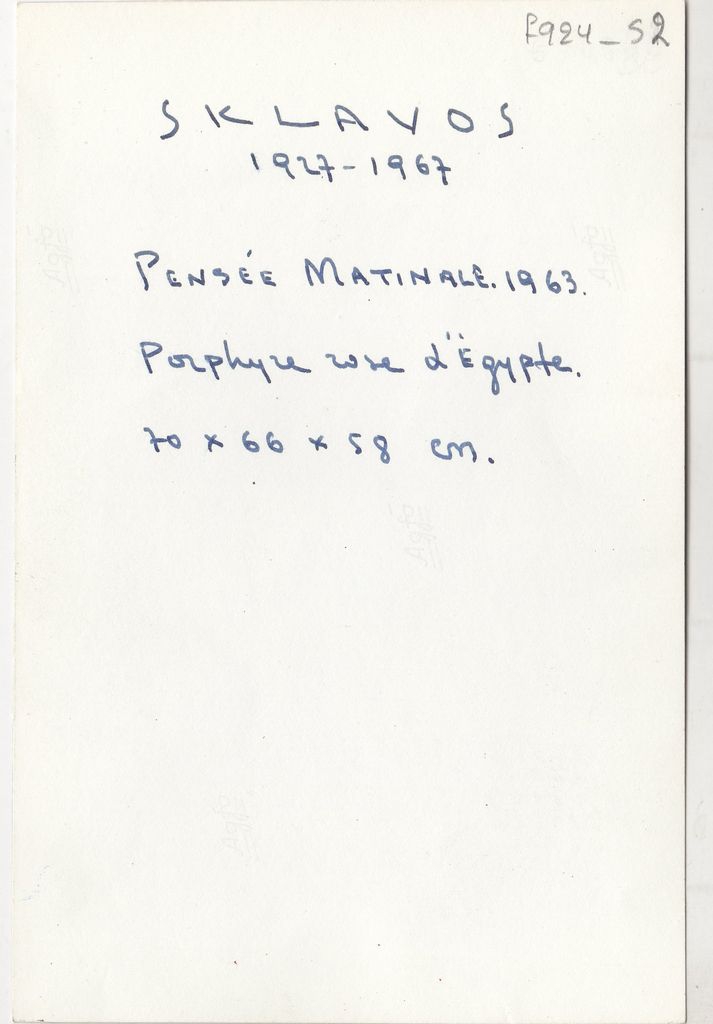 F924_S2
SKLAVOS
1927-1967
PENSÉE MATINALE. 1963.
Porphyre rose d'Égypte.
70 x 66 x 58 cm.
Agfa
Agfa
Agfa
Agfa